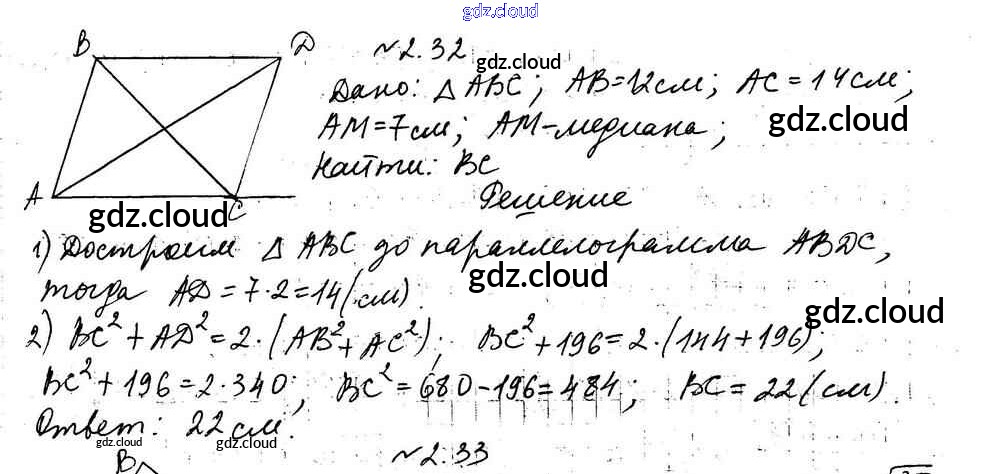 gdz.cloud
B D №2.32
gdz.cloud
Дано: △ABC; AB=12см; AC=14см;
AM=7см; AM-медиана; gdz.cloud
Найти: BC
A C Решение
gdz.cloud
1) Достроим △ABC до параллелограмма ABDC,
gdz.cloud
тогда AD=7·2=14(см)
gdz.cloud
2) BC²+AD²=2·(AB²+AC²); BC²+196=2·(144+196);
BC²+196=2·340; BC²=680-196=484; BC=22(см).
Ответ: 22см.
gdz.cloud gdz.cloud gdz.cloud
B №2.33